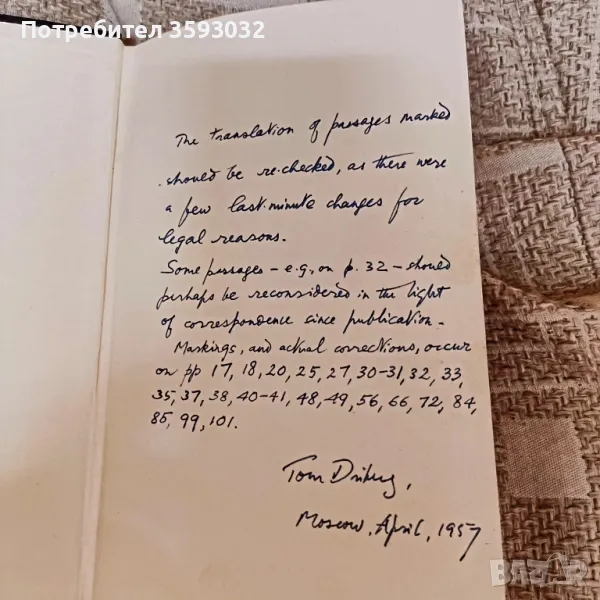 Потребител 3593032
The translation of passages marked
should be re-checked, as there were
a few last-minute changes for
legal reasons.
Some passages – e.g., on p. 32 – should
perhaps be reconsidered in the light
of correspondence since publication.
Markings, and actual corrections, occur
on pp 17, 18, 20, 25, 27, 30-31, 32, 33,
35, 37, 38, 40-41, 48, 49, 56, 66, 72, 84,
85, 99, 101.
Tom Driberg,
Moscow, April, 1957